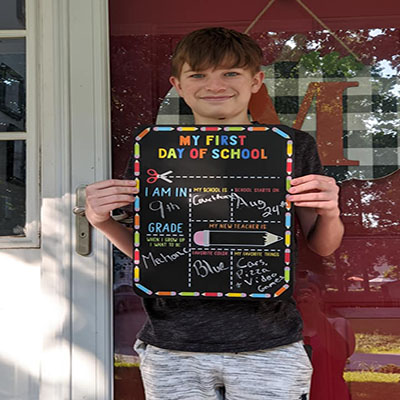 MY FIRST
DAY OF SCHOOL
I AM IN
9th
GRADE
MY SCHOOL IS
SCHOOL STARTS ON
Aug 24th
MY NEW TEACHER IS
WHEN I GROW UP
I WANT TO BE
FAVORITE COLOR
Blue
MY FAVORITE THINGS
Cars,
Pizza
Video
Games